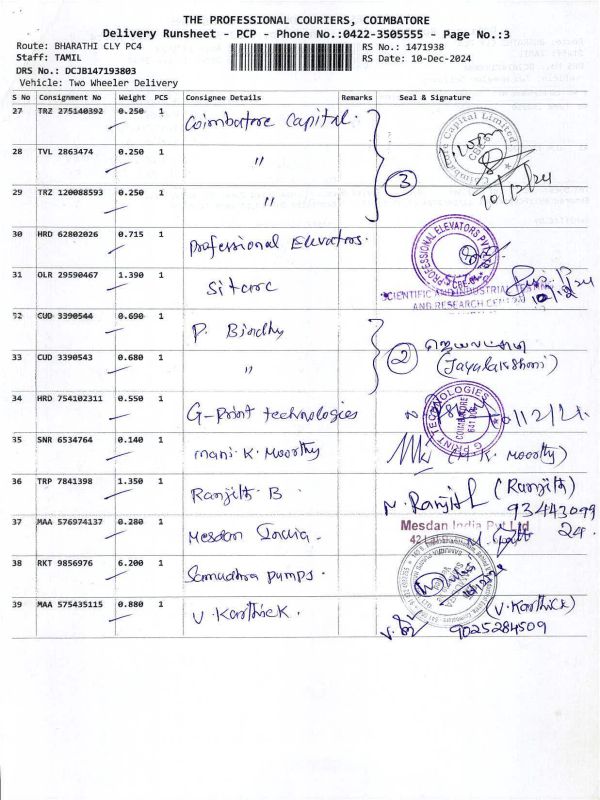 THE PROFESSIONAL COURIERS, COIMBATORE
Delivery Runsheet - PCP - Phone No.:0422-3505555 - Page No.:3
Route: BHARATHI CLY PC4
RS No.: 1471938
Staff: TAMIL
RS Date: 10-Dec-2024
DRS No.: DCJB147193803
Vehicle: Two Wheeler Delivery
S No Consignment No Weight PCS Consignee Details Remarks Seal & Signature
27 TRZ 275140392 0.250 1 Coimbatore Capital.
Capital Limited
10/12/24
28 TVL 2863474 0.250 1 "
3
29 TRZ 120088593 0.250 1 "
30 HRD 62802026 0.715 1 Professional Elevators.
PROFESSIONAL ELEVATORS PVT
31 OLR 29590467 1.390 1 Sitarc
SCIENTIFIC AND INDUSTRIAL
AND RESEARCH
32 CUD 3390544 0.690 1 P. Bindhy
33 CUD 3390543 0.680 1 "
2
(Jayalakshmi)
34 HRD 754102311 0.550 1 G-Print technologies
G-PRINT TECHNOLOGIES
COIMBATORE
35 SNR 6534764 0.140 1 Mani. K. Moorthy
(M. K. Moorthy)
36 TRP 7841398 1.350 1 Ranjith. B
(Ranjith)
9344309924
37 MAA 576974137 0.280 1 Mesdan India.
Mesdan India Pvt Ltd
38 RKT 9856976 6.200 1 Samudhra pumps.
39 MAA 575435115 0.880 1 V. Karthick.
(V. Karthick)
9025284509